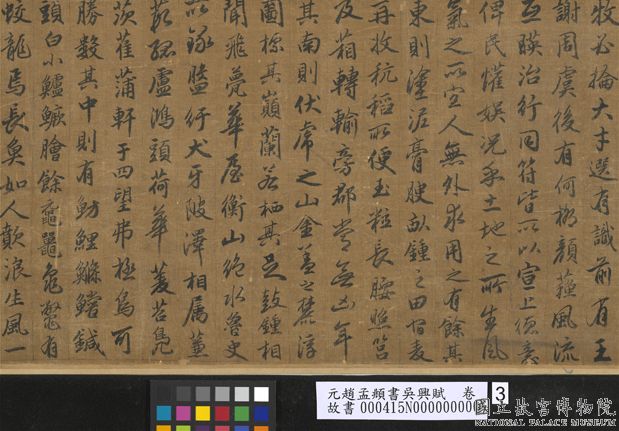 牧必掄大才選有識前有王
謝周虞後有何柳顏蘇風流
互暎治行同符皆所以宣上德意
俾民懽娛況乎土地之所生風
氣之所宜人無外求用之有餘其
東則塗泥膏腴畝鍾之田宿麥
再收秔稻所便玉粒長腰照筥
及箱轉輸旁郡常無凶年
其南則伏虎之山金蓋之麓浮
圖標其巔蘭若栖其足鼓鍾相
聞飛甍華屋衡山絕水魯史
所錄盤紆犬牙陂澤相屬蒹
葭菰蘆鴻頭荷華菱苕鳧
茨萑蒲軒于四望弗極烏可
勝數其中則有魴鯉鰷鱨鍼
頭白小鱸鱖膾餘黿鼉龜鱉有
蛟龍焉長魚如人歕浪生風一
元趙孟頫書吳興賦　卷
故書 000415N000000000
3
國立故宮博物院
NATIONAL PALACE MUSEUM